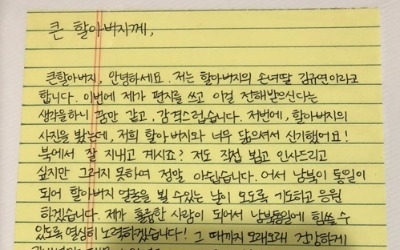 큰 할아버지께,
큰할아버지, 안녕하세요. 저는 할아버지의 손녀딸 김규연이라고
합니다. 이번에 제가 편지를 쓰고 이걸 전해받으신다는
생각을하니 꿈만 같고, 감격스럽습니다. 저번에, 할아버지의
사진을 봤는데, 저희 할아버지와 너무 닮으셔서 신기했어요!
북에서 잘 지내고 계시죠? 저도 직접 뵙고 인사드리고
싶지만 그러지 못하여 정말 아쉽습니다. 어서 남북이 통일이
되어 할아버지 얼굴을 뵐 수있는 날이 오도록 기도하고 응원
하겠습니다. 제가 훌륭한 사람이 되어서 남북통일에 힘쓸 수
있도록 열심히 노력하겠습니다! 그 때까지 오래오래 건강하게